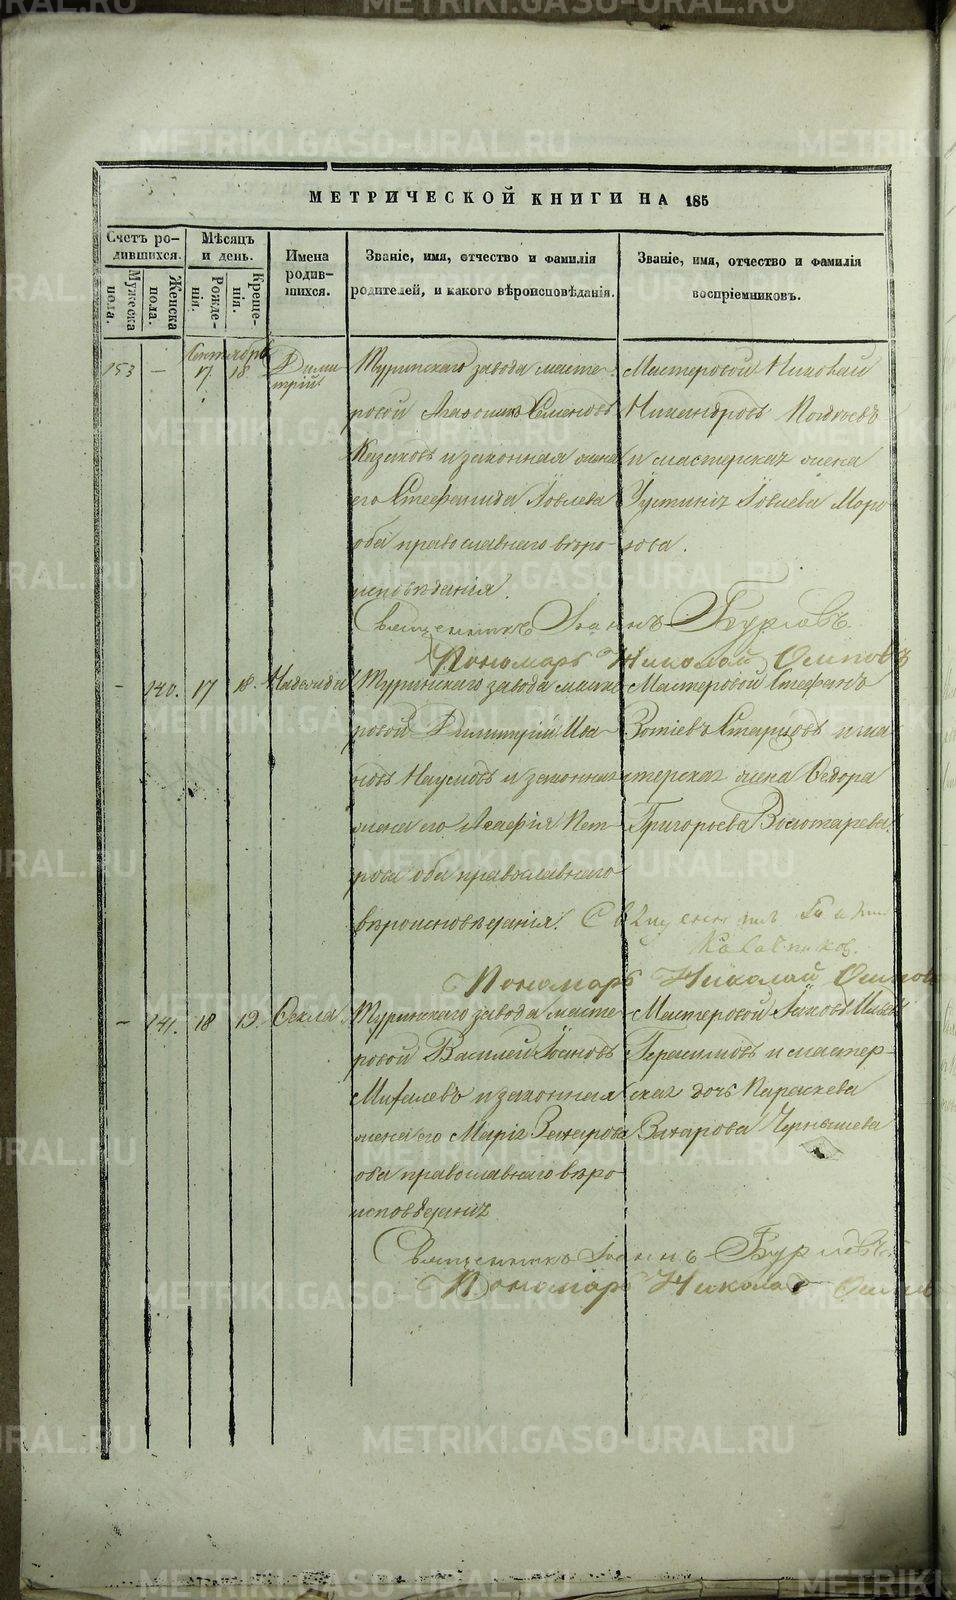 МЕТРИЧЕСКОЙ КНИГИ НА 185
Счетъ ро-
дившихся.
Мужеска
пола.
Женска
пола.
Мѣсяцъ
и день.
Рожде-
нія.
Креще-
нія.
Имена
родив-
шихся.
Званіе, имя, отчество и фамилія
родителей, и какого вѣроисповѣданія.
Званіе, имя, отчество и фамилія
воспріемниковъ.
Сентябрь
153 — 17. 18. Дими
трій
Туринскаго завода масте-
ровой Семеновъ
Казаковъ и законная жена
его Стефанида Іовлева
оба православнаго вѣро-
исповѣданія.
Мастеровой Николай
Никандровъ
и мастерская жена
Устинія Іовлева Моро
зова.
Священникъ Іоаннъ Бурловъ
Пономарь Николай Осиповъ
— 140. 17 18. Надежда
Туринскаго завода масте
ровой Димитрій Ива
новъ Наумовъ и законная
жена его Агафія Пет
рова оба православнаго
вѣроисповѣданія.
Мастеровой Стефанъ
Зотіевъ Старцовъ и ма
стерская жена Федора
Григорьева Золотарева.
Священникъ
Пономарь Николай Осипов
— 141. 18 19. Фекла.
Туринскаго завода масте
ровой Василей Іоановъ
Михалевъ и законная
жена его Марія Захарова
оба православнаго вѣро
исповѣданія
Мастеровой Іаковъ
Герасимовъ и мастер-
ская дочь Параскева
Захарова Чернышева
Священникъ Іоаннъ Бурловъ.
Пономарь Николай
METRIKI.GASO-URAL.RU